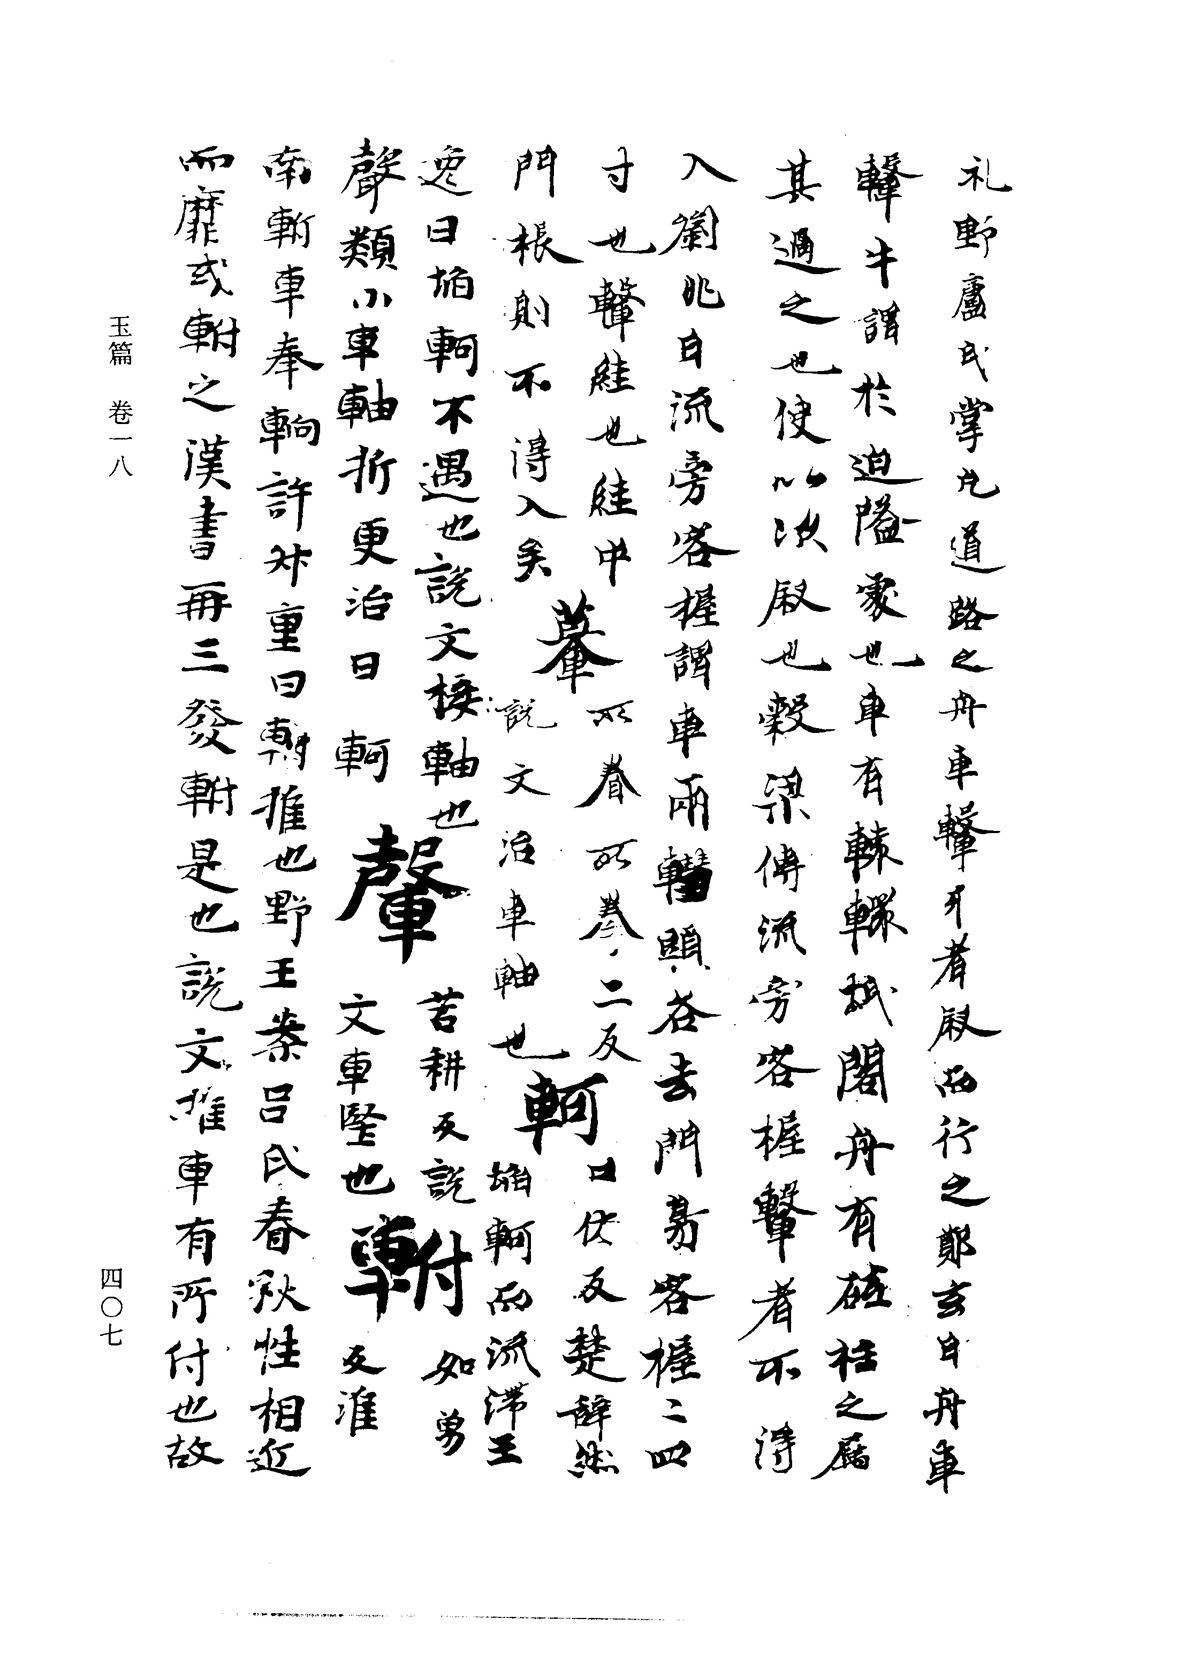 礼野廬氏掌凢道路之舟車轚牙者叙而行之鄭玄曰舟車
轚牛謂於迫隘處也車有轅轘抵閣舟有砥柱之属
其過之也使以次叙也穀梁傳流旁容握轚者不得
入劉兆曰流旁容握謂車兩轊頭各去門葛容握二四
寸也轚絓也絓中
門棖則不得入矣
䡓
所眷所拳二反
說文治車軸也
軻
口佐反楚辭然
埳軻而流滞王
逸曰埳軻不遇也說文椄軸也
聲類小車軸折更治曰軻
䡰
苦耕反說
文車堅也
軵
如勇
反淮
南軵車奉餉許叔重曰軵推也野王案吕氏春秋性相近
而靡或軵之漢書再三發軵是也說文推車有所付也故
玉篇 卷一八
四〇七